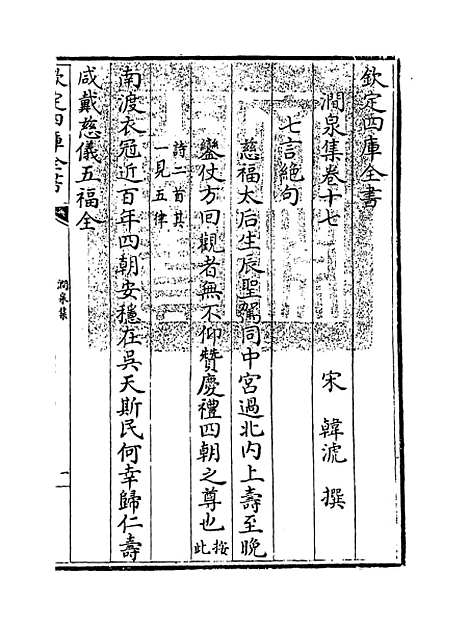 欽定四庫全書
澗泉集卷十七
宋 韓淲 撰
七言絶句
慈福太后生辰聖駕同中宮過北内上壽至晚
鑾仗方回觀者無不仰贊慶禮四朝之尊也按此
詩二首其
一見五律
南渡衣冠近百年四朝安穩在吳天斯民何幸歸仁壽
咸戴慈儀五福全
欽定四庫全書
澗泉集